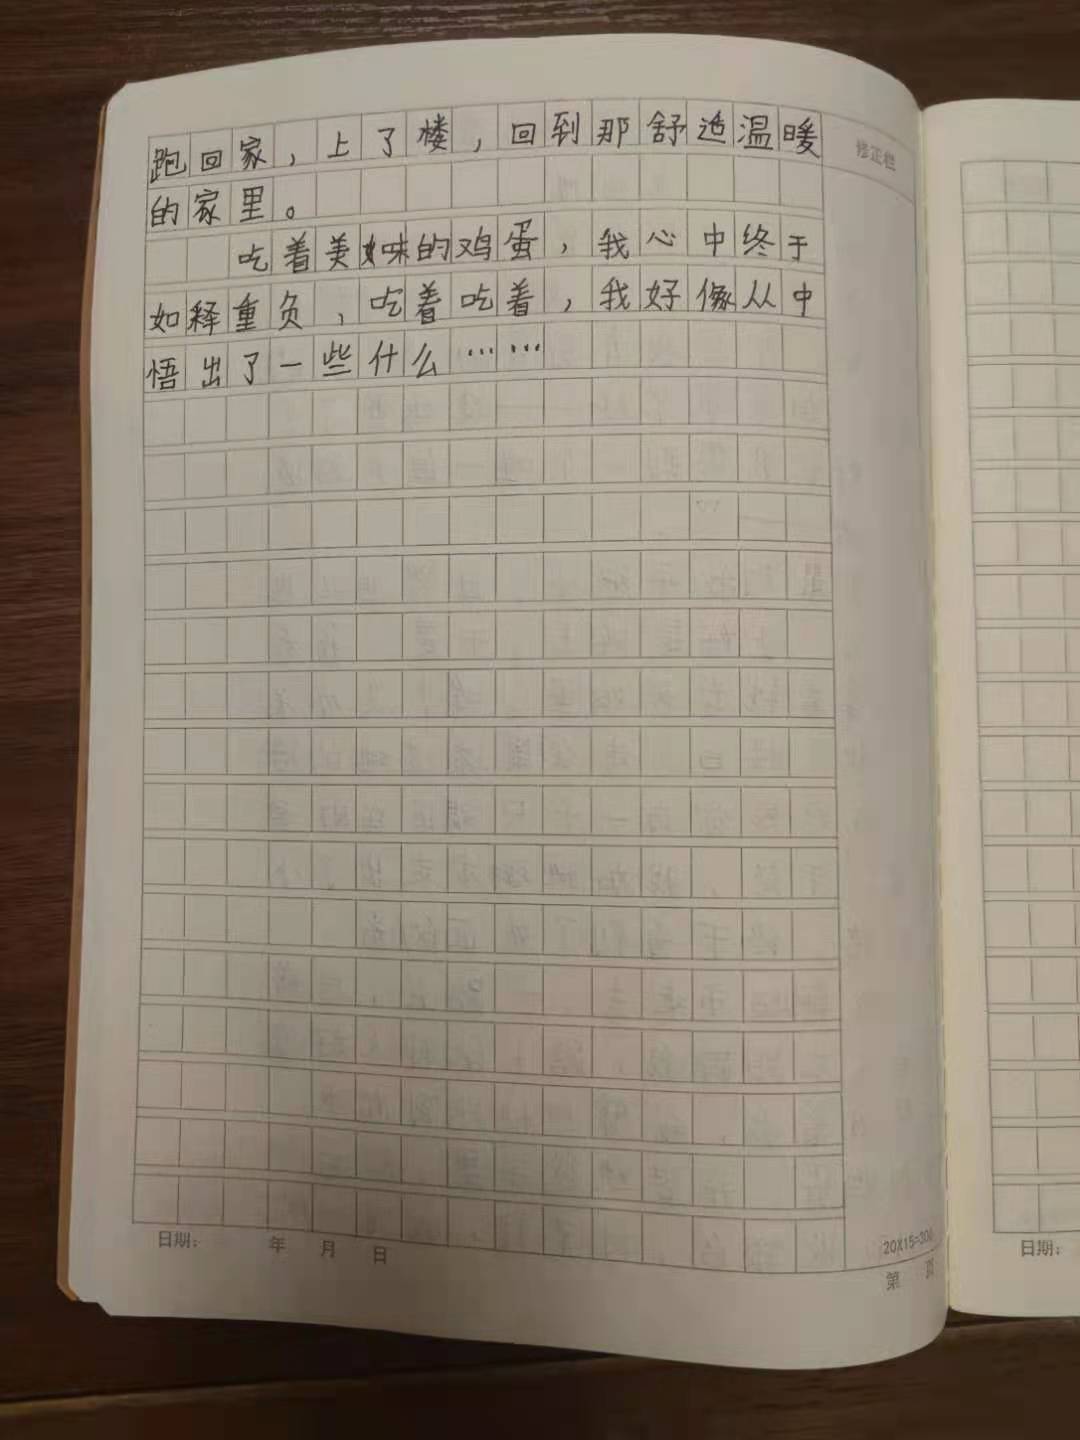 跑回家，上了楼，回到那舒适温暖
的家里。
吃着美味的鸡蛋，我心中终于
如释重负，吃着吃着，我好像从中
悟出了一些什么……
修正栏
日期： 年 月 日
20X15=300
第 页
日期：